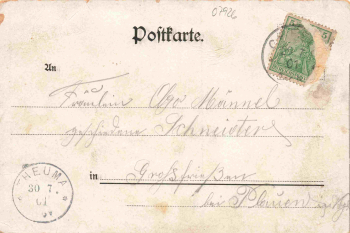 07926
Postkarte.
5
An
Fräulein Olga Männel
geschiedene Schneider
in Großfriesen
bei Plauen
THEUMA
30 7.
01